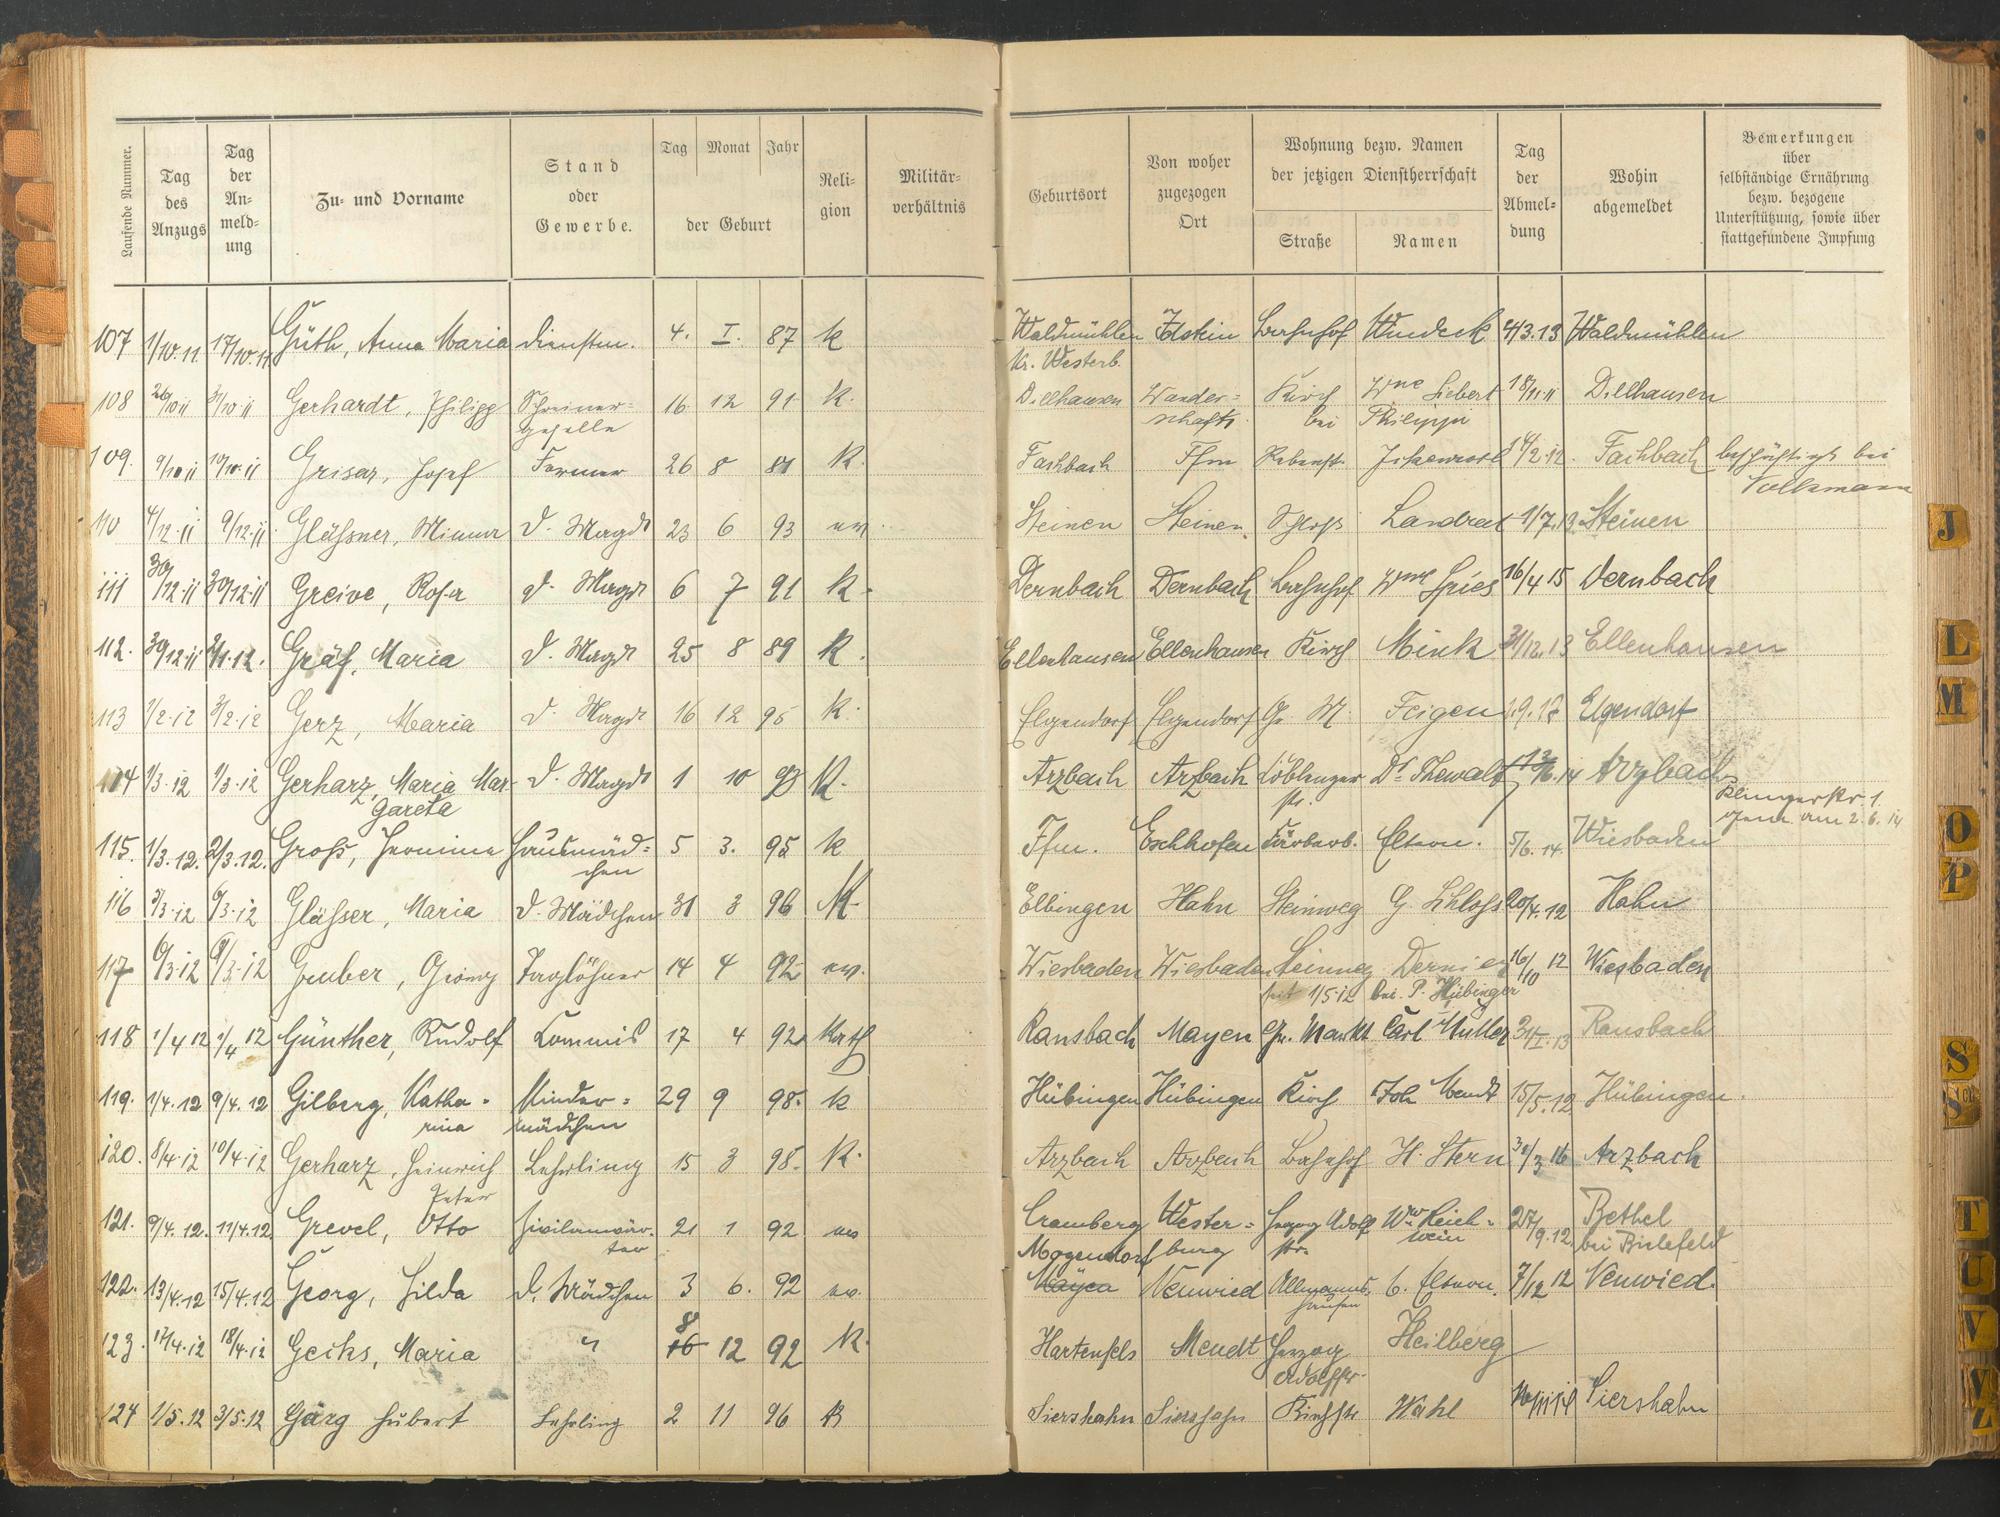 Laufende Nummer.
Tag des Anzugs
Tag der An- meld- ung
Zu- und Vorname
Stand oder Gewerbe.
Tag Monat Jahr
der Geburt
Reli- gion
Militär- verhältnis
Geburtsort
Von woher zugezogen Ort
Wohnung bezw. Namen der jetzigen Dienstherrschaft
Straße Namen
Tag der Abmel- dung
Wohin abgemeldet
Bemerkungen über selbständige Ernährung bezw. bezogene Unterstützung, sowie über stattgefundene Impfung
107 1/10.11 17/10.11 Güth, Anna Maria Dienstm. 4. I. 87 k Waldmühlen Idstein Bahnhof Windeck 4/3.13 Waldmühlen
Kr. Westerb.
108 26/10 11 31/10 11 Gerhardt, Philipp Schreiner= 16 12 91 k. Dillhausen Wander= Kirch Wwe Siebert 18/11 11 Dillhausen
geselle schaft bei Philippi
109. 9/10 11 10/10.11 Grisar, Josef Former 26 8 81 K. Fachbach Ffm 14/2.12. Fachbach beschäftigt bei
Volkmann
110 4/12.11 9/12.11 Gläßner, Minna d. Magd 23 6 93 ev. Steinen Steinen Schloß Landrat 1/7.13 Steinen
111 30/12.11 30/12.11 Greive, Rosa d. Magd 6 7 91 k. Dernbach Dernbach Bahnhof Wwe Spies 16/4 15 Dernbach
112. 30/12.11 2/1.12. Gräf, Maria d. Magd 25 8 89 k. Ellenhausen Ellenhausen Kirch Mink 31/12.13 Ellenhausen
113 1/2.12 3/2.12 Gerz, Maria d. Magd 16 12 95 k. Elgendorf Elgendorf Gr. M. Feigen 1.9.17 Elgendorf
114 1/3.12 1/3.12 Gerharz, Maria Mar- d. Magd 1 10 93 K. Arzbach Arzbach Löhlunger Dr. Thewalt 13/6.14 Arzbach
gareta str.
Klingerstr. 1.
gem. am 2.6.14
115. 1/3.12. 2/3.12. Groß, Hermine Hausmäd= 5 3. 95 k Ffm. Eschhofen Färberb. Eltern. 5/6.14. Wiesbaden
chen
116 5/3.12 6/3.12 Gläßer, Maria d. Mädchen 31 3 96 K. Elbingen Hahn Steinweg G. Schloß 20/4.12 Hahn
117 6/3.12 8/3.12 Gruber, Georg Taglöhner 14 4 92 ev. Wiesbaden Wiesbaden Steinweg Dernier 16/10 12 Wiesbaden
seit 1/5.12 bei P. Hübinger
118 1/4 12 1/4 12 Günther, Rudolf Commis 17 4 92 Kath Ransbach Mayen Gr. Markt Carl Müller 31/I.13 Ransbach
119. 1/4.12 9/4.12 Gilberg, Katha- Kinder= 29 9 98. k Hübingen Hübingen Kirch Joh Mendt 15/5.12 Hübingen.
rina mädchen
120. 8/4.12 10/4.12 Gerharz, Heinrich Lehrling 15 3 98. K. Arzbach Arzbach Bahnhof H. Stern 31/3 16 Arzbach
Peter
121. 9/4.12. 11/4.12 Grevel, Otto Zivilanwär- 21 1 92 ev Cramberg Wester= Herzog Adolf Ww. Reich- 27/9.12. Bethel
ter burg str. wein bei Bielefeld
Mogendorf
122. 13/4.12 15/4.12 Georg, Hilda d. Mädchen 3 6. 92 ev. Mayen Neuwied Allmanns- b. Eltern. 7/12 12 Neuwied.
hausen
123. 17/4.12 18/4.12 Geihs, Maria " 16 8 12 92 K. Hartenfels Mendt Herzog Heilberg
Adolfstr.
124 1/5.12 3/5.12 Görg Hubert Lehrling 2 11 96 K Siershahn Siershahn Kirchstr Wahl Siershahn
J
L
M
O
P
S
Sch
T
U
V
W
Z